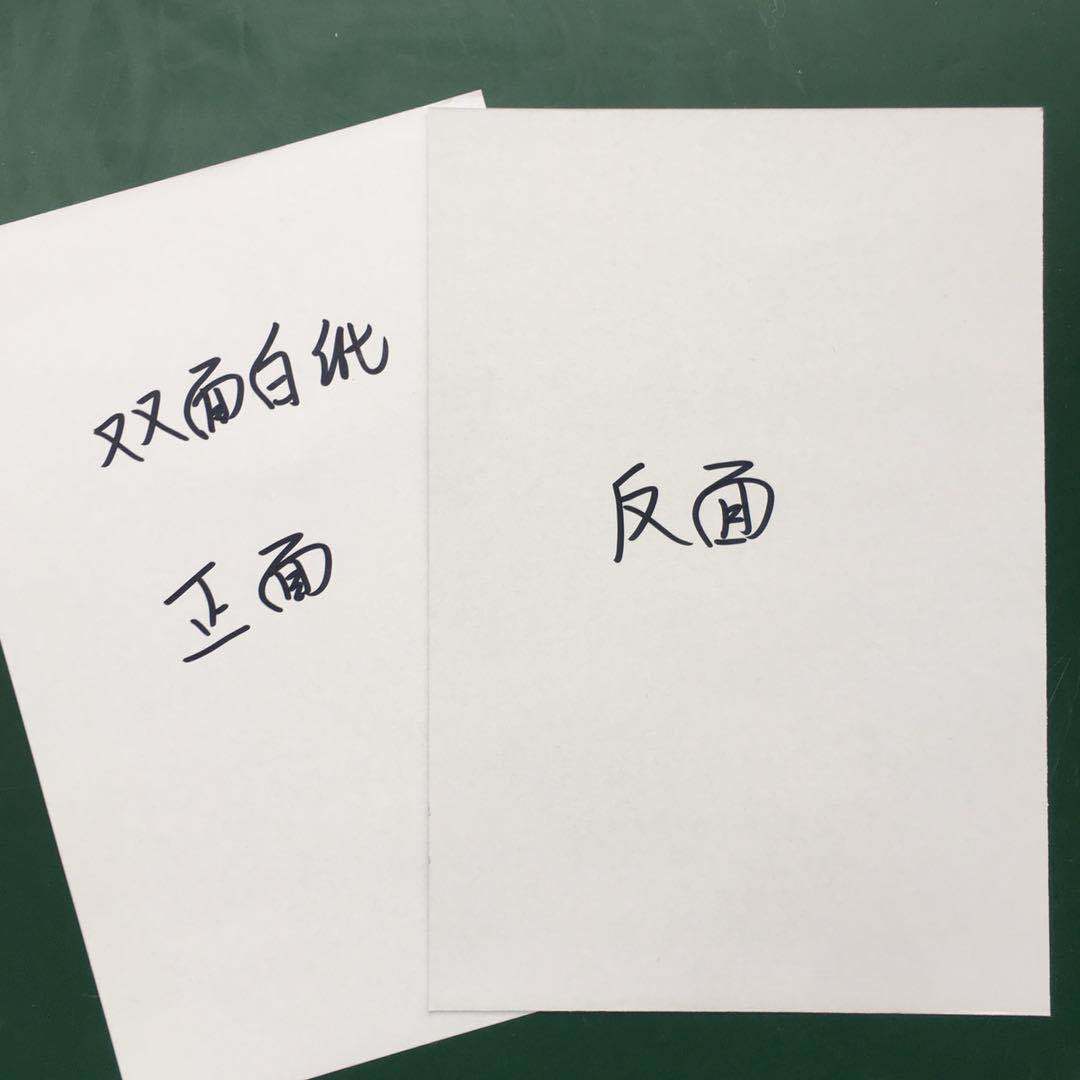 双面白纸
正面
反面